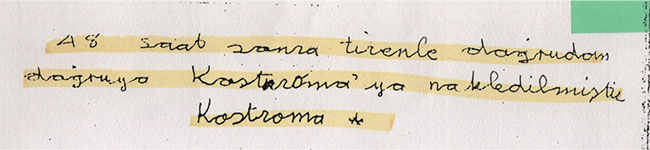 48 saat sonra tirenle doğrudan
doğruya Kostroma'ya nakledilmiştir
Kostroma *